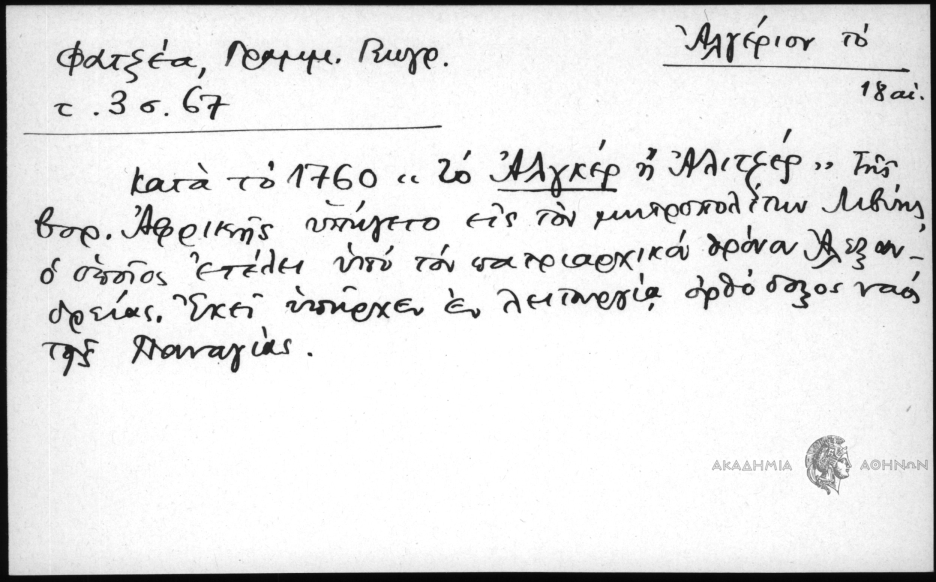 Φατζέα, Γραμμ. Γεωγρ.
τ. 3 σ. 67
Ἀλγέριον τὸ
18 αἰ.
Κατὰ τὸ 1760 «τὸ Ἀλγκέρ ἢ Ἀλιτζέρ» τῆς
βορ. Ἀφρικῆς ὑπήγετο εἰς τὸν μητροπολίτην Λιβύης
ὁ ὁποῖος ἐτέλει ὑπὸ τὸν πατριαρχικὸν θρόνον Ἀλεξαν-
δρείας. Ἐκεῖ ὑπῆρχεν ἐν λειτουργίᾳ ὀρθόδοξος ναὸς
τῆς Παναγίας.
ΑΚΑΔΗΜΙΑ ΑΘΗΝΩΝ